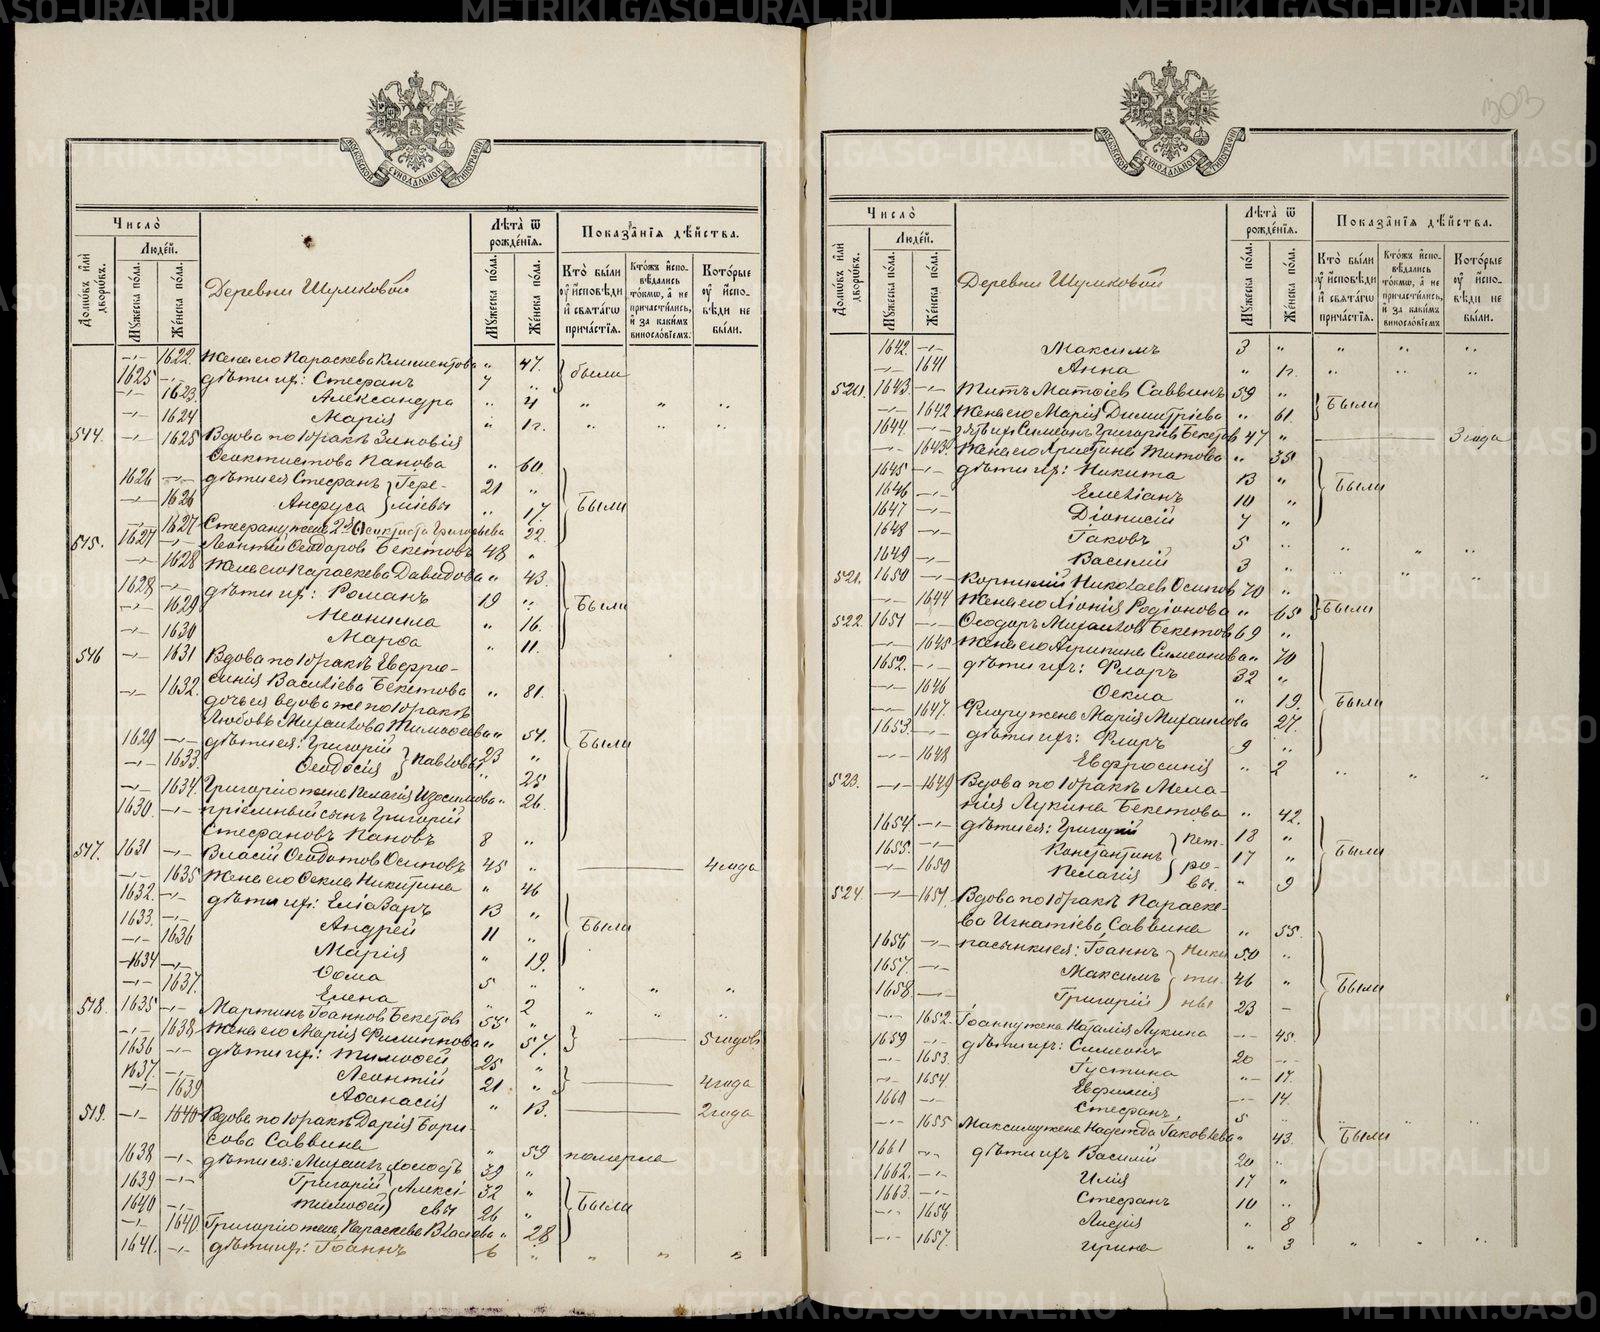 303
МОСКОВСКОЙ СУНОДАЛЬНОЙ ТИПОГРАФІИ
Число̀
Домѡвъ и҆лѝ дворѡвъ.
Люде́й.
Мꙋ́жеска по́ла.
Же́нска по́ла.
Деревни Шумковой
Лѣта̀ ѿ рожде́нїѧ.
Мꙋ́жеска по́ла.
Же́нска по́ла.
Показа̑нїѧ дѣ́йства.
Кто̀ бы́ли ᲂу҆ и҆сповѣ́ди и҆ свѧта́гѡ прича́стїѧ.
Кто́жъ и҆спо-вѣ́дались то́кмѡ, а҆ не причасти́лись, и҆ за каки́мъ виносло́вїемъ.
Кото́рые ᲂу҆ и҆спо-вѣ́ди не бы́ли.
1622. Жена его Параскева Климентова " 47. были
1625 дѣти их: Стефанъ 7 "
1623. Александра " 4 " " "
1624 Марія " 1г. " " "
514. 1625 Вдова по 1 бракѣ Зиновія
Феоктистова Панова " 60.
1626 дѣти ея Стефанъ Тере- 21 "
1626 Анфуса нтіевы " 17 Были
1627 Стефану жена 2 бр Феоктиста Григорьева 22.
515. 1627 Леонтій Феодоровъ Бекетовъ 48 "
1628 Жена его Параскева Давидова " 43.
1628 дѣти их: Романъ 19 "
1629 Неонилла " 16. Были
1630 Марфа " 11.
516 1631 Вдова по 1 бракѣ Евфро-
синія Васильева Бекетова " 81.
1632. дочь ея вдова же по 1 бракѣ
Любовь Михаилова Тимофеева " 51.
1629 дѣти ея: Григорій 23 " Были
1633. Феодосія Павловы " 25
1634. Григорію жена Пелагія Изосимова " 26.
1630. пріемный сынъ Григорій
Стефановъ Пановъ 8 "
517. 1631 Власій Феодотовъ Осиповъ 45 " 4 года
1635 Жена его Фекла Никитина " 46
1632. дѣти их: Еліазаръ 13 "
1633. Андрей 11 " Были
1636 Марія " 19.
1634 Фома 5 " " " "
1637. Елена " 2 " " "
518. 1635 Мартинъ Іоанновъ Бекетовъ 55 "
1638 Жена его Марія Филиппова " 57. 5 годовъ
1636 дѣти их: Тимофей 25 "
1637. Леонтій 21 " 4 года
1639 Афанасія " 13. 2 года
519. 1640 Вдова по 1 бракѣ Дарія Бори-
сова Саввина " 59 померла
1638 дѣти ея: Михаилъ холостъ 39 "
1639 Григорій Алексі- 32 "
1640 Тимофей евы 26 " Были
1640 Григорію жена Параскева Власова " 28
1641. дѣти их: Іоаннъ 6 " " " "
Число̀
Домѡвъ и҆лѝ дворѡвъ.
Люде́й.
Мꙋ́жеска по́ла.
Же́нска по́ла.
Деревни Шумковой
Лѣта̀ ѿ рожде́нїѧ.
Мꙋ́жеска по́ла.
Же́нска по́ла.
Показа̑нїѧ дѣ́йства.
Кто̀ бы́ли ᲂу҆ и҆сповѣ́ди и҆ свѧта́гѡ прича́стїѧ.
Кто́жъ и҆спо-вѣ́дались то́кмѡ, а҆ не причасти́лись, и҆ за каки́мъ виносло́вїемъ
Кото́рые ᲂу҆ и҆спо-вѣ́ди не бы́ли.
1642. Максимъ 3 " " " "
1641 Анна " 1г. " " "
520. 1643. Титъ Матфіевъ Саввинъ 59 "
1642 Жена его Марія Димитріева " 61. Были
1644. зять их Симеонъ Григоріевъ Бекетовъ 47 " 3 года
1643. Жена его Христина Титова " 35
1645 дѣти их: Никита 13 "
1646 Емеліанъ 10 " Были
1647 Діонисій 7 "
1648 Іаковъ 5 " " " "
1649 Василій 3 " " " "
521. 1650 Корнилій Николаевъ Осиповъ 70 "
1644 Жена его Хіонія Родіонова " 65 Были
522. 1651 Феодоръ Михаиловъ Бекетовъ 69 "
1645 Жена его Агрипина Симеонова " 70
1652. дѣти ихъ: Флоръ 32 "
1646 Фекла " 19. Были
1647. Флору жена Марія Михаилова 27.
1653. дѣти ихъ: Флоръ 9 "
1648 Евфросинія " 2 " " "
523. 1649 Вдова по 1 бракѣ Мела-
нія Лукина Бекетова " 42.
1654. дѣти ея: Григорій Пет- 18 "
1655. Константинъ ро- 17 " Были
1650 Пелагія вы. " 9
524. 1651. Вдова по 1 бракѣ Параске-
ва Игнатіева Саввина " 55.
1656 пасынки ея: Іоаннъ Ники- 50 "
1657. Максимъ ти- 46 " Были
1658. Григорій ны 23
1652. Іоанну жена Наталія Лукина 45.
1659 дѣти ихъ: Симеонъ 20
1653. Іустина 17.
1654 Евфимія 14.
1660 Стефанъ 5 " " "
1655 Максиму жена Надежда Іаковлева " 43. Были
1661 дѣти ихъ Василій 20 "
1662. Илія 17 "
1663. Стефанъ 10 "
1656 Лидія " 8
1657. Ирина " 3 " " "
METRIKI.GASO-URAL.RU